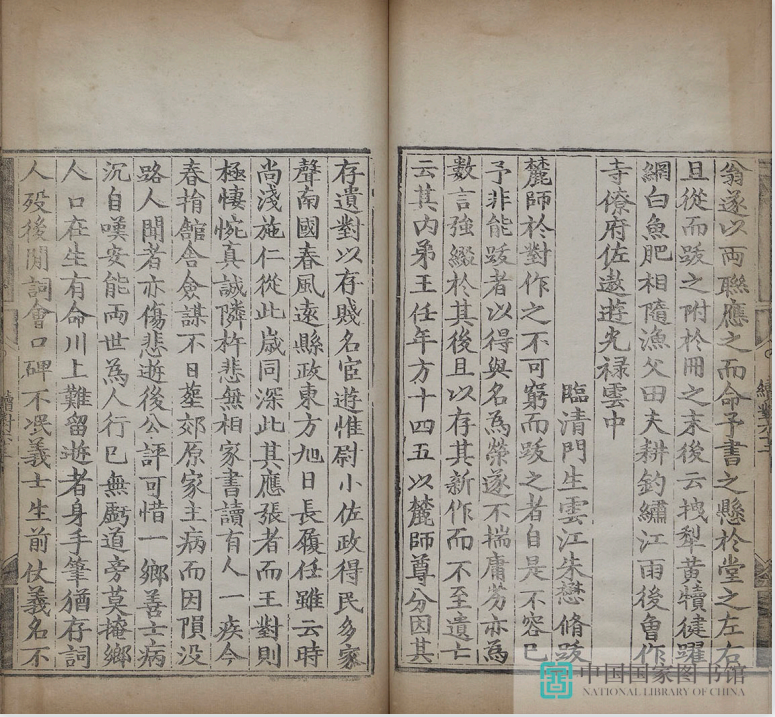 翁遂以両聯應之而命予書之懸於堂之左右
且從而跋之附於冊之末後云拽犁黄犢健躍
網白魚肥相隨漁父田夫耕釣繡江雨後曾作
寺僚府佐遨遊光禄雲中
臨清門生雲江朱懋脩跋
麓師於對作之不可窮而跋之者自是不容已
予非能跋者以得與名為榮遂不揣庸劣亦為
數言強綴於其後且以存其新作而不至遺亡
云其内弟王任年方十四五以麓師尊分因其
存遺對以存賤名宦遊惟尉小佐政得民多家
聲南國春風遠縣政東方旭日長履任雖云時
尚淺施仁從此歲同深此其應張者而王對則
極悽惋真誠隣杵悲無相家書讀有人一疾今
春捐館舎僉謀不日塟郊原家主病而因隕没
路人聞者亦傷悲逝後公評可惜一鄉善士病
沉自嘆安能両世為人行已無虧道旁莫掩鄉
人口在生有命川上難留逝者身手筆猶存詞
人殁後閒詞會口碑不泯義士生前仗義名不
中国国家图书馆
NATIONAL LIBRARY OF CHINA